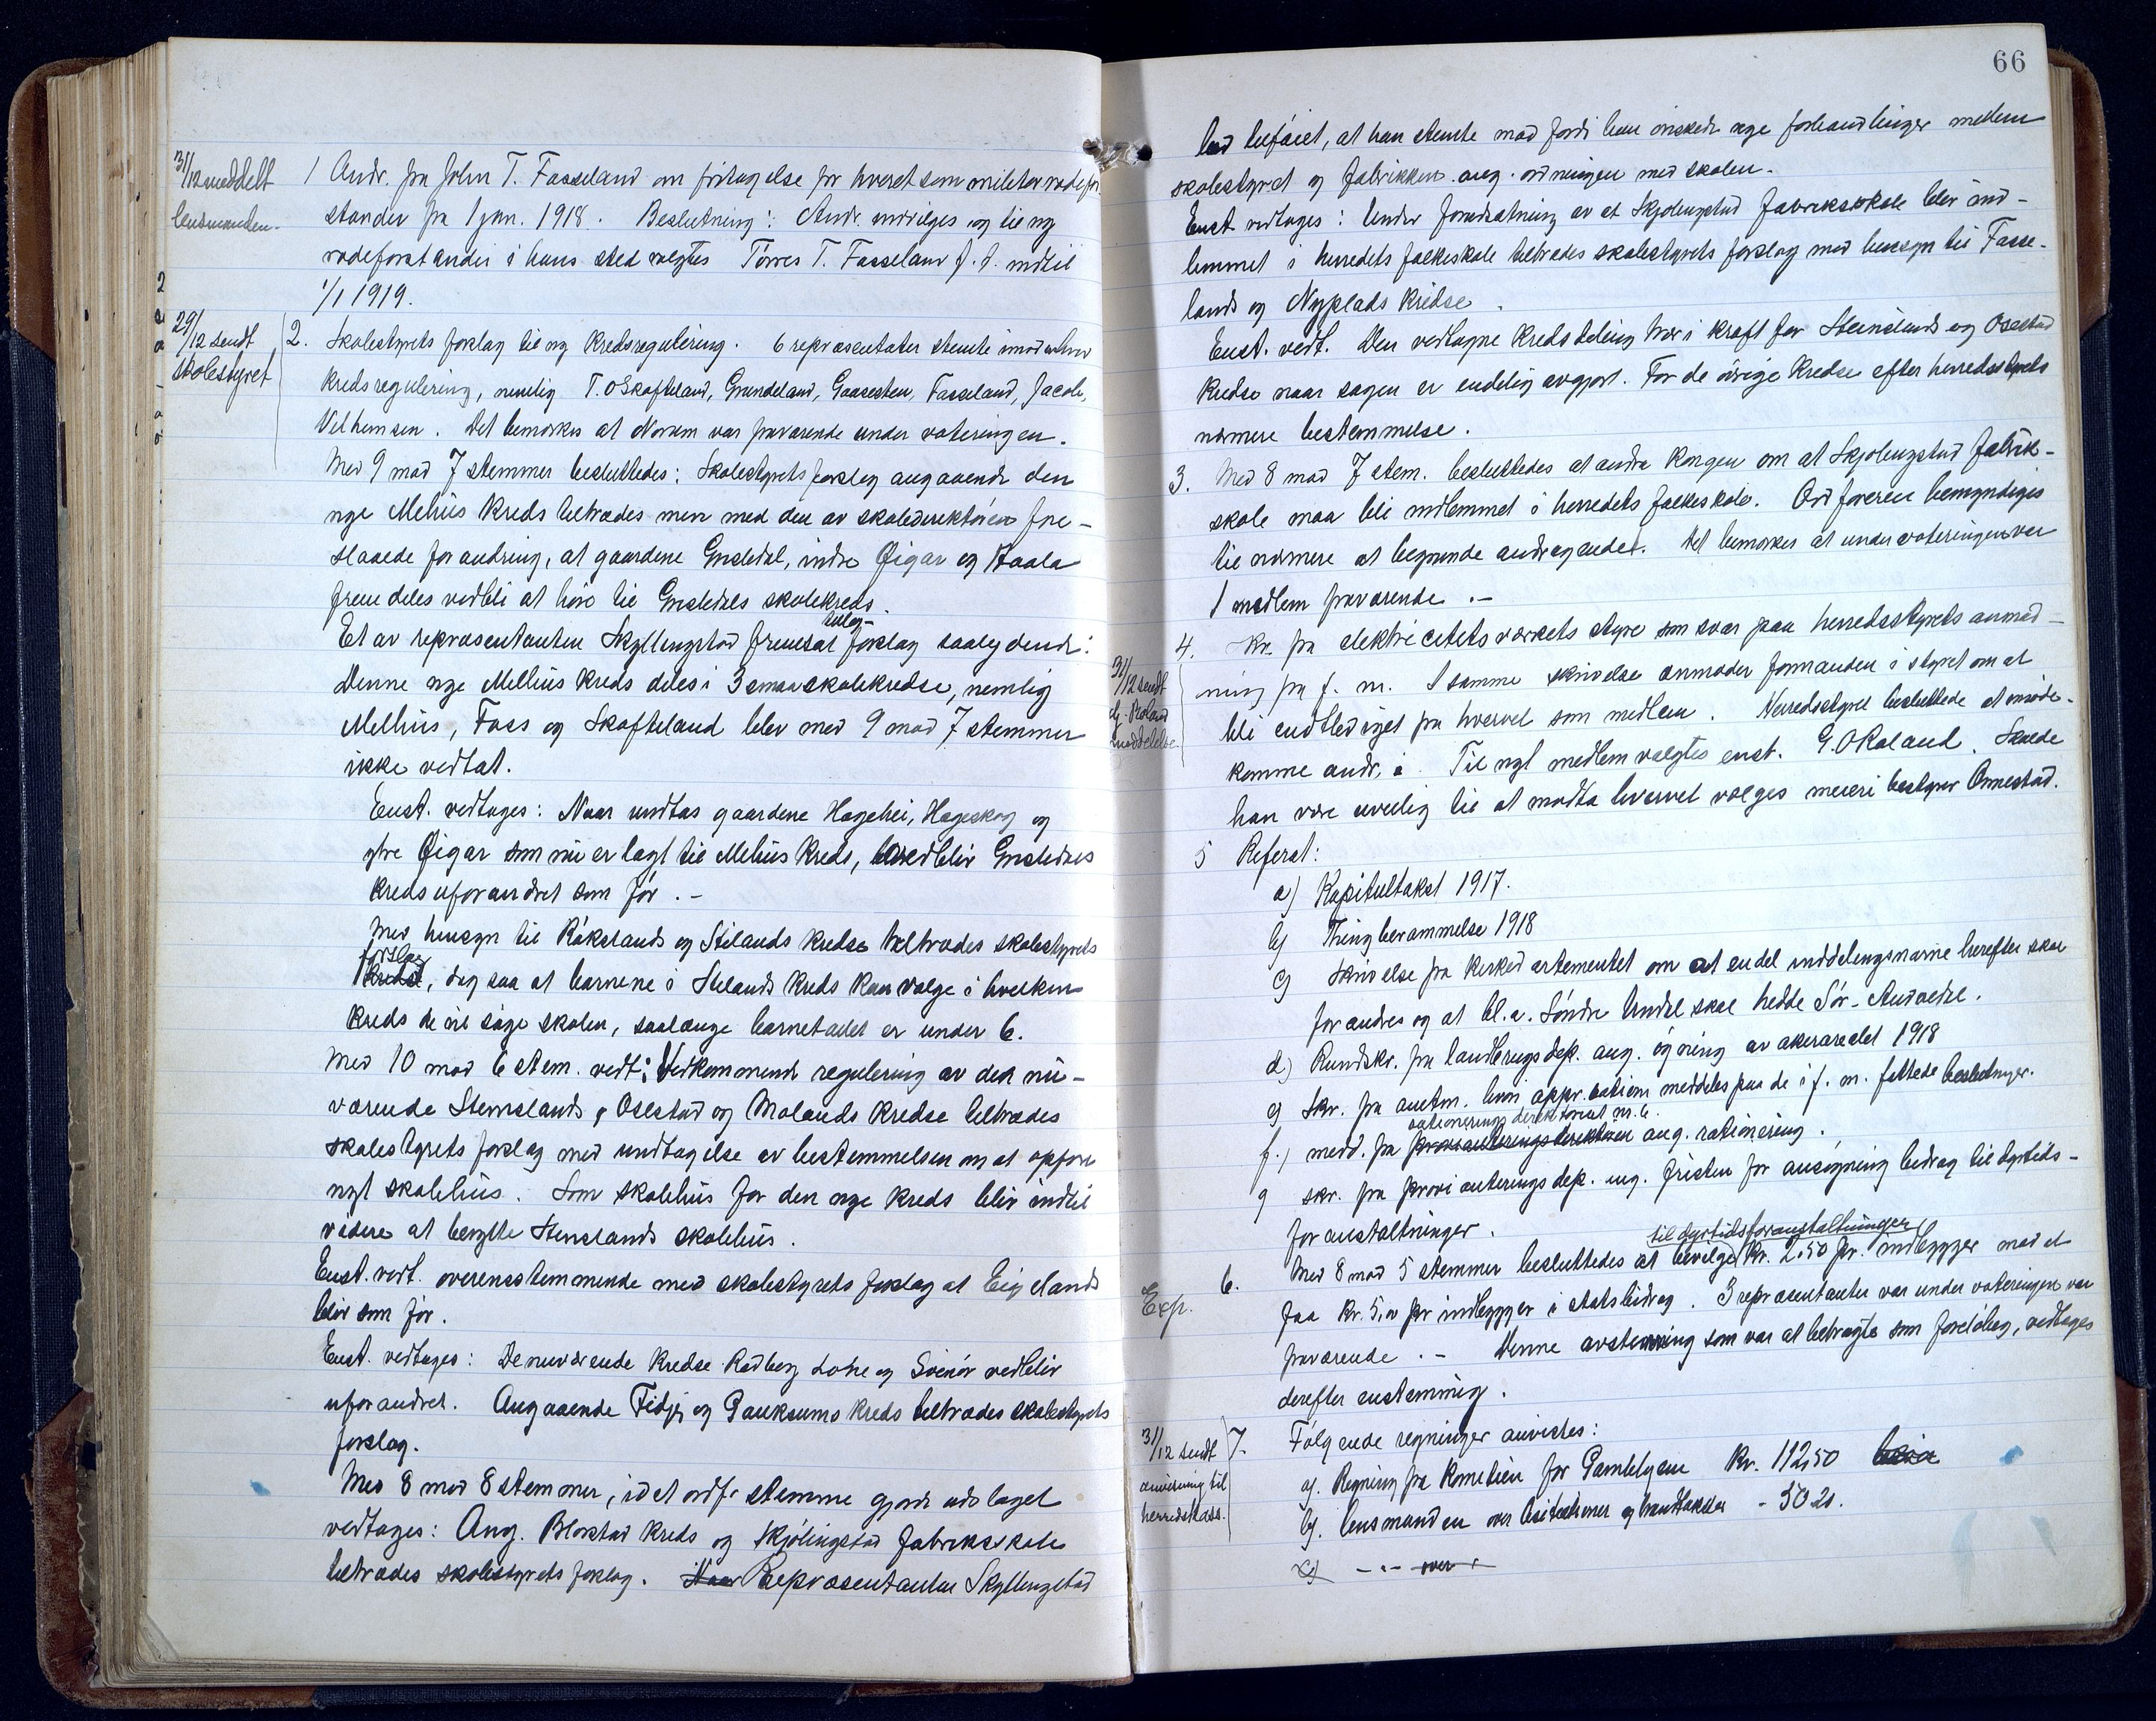 31/12 meddelt
lensmanden.
1 Andr. fra John T. Fasseland om fritagelse for hvervet som militær rodefor-
stander fra 1 jan. 1918. Beslutning: Andr. indvilges og til ny
rodeforstander i hans sted valgtes Torres T. Fasseland f. t. indtil
1/1 1919.
29/12 sendt
skolestyret
2. Skolestyrets forslag til ny kredsregulering. 6 repræsentater stemte imod enhver
kredsregulering, nemlig T. O Skofteland, Grundeland, Gaasesten, Fasseland, Jacob,
Vilhemsen. Det bemærkes at Norum var fraværende under voteringen.
Med 9 mod 7 stemmer besluttedes: Skolestyrets forslag angaaende den
nye Melhus kreds tiltrædes men med den av skoledirektøren fore-
slaaede forandring, at gaardene Gnsledal, indre Øigar og Haala
fremdeles vedbli at høre til Gnsledals skolekreds.
Et av repræsentanten Skyllingstad fremsat tillægs-
forslag saalydende:
Denne nye Melhus kreds deles i 3 smaa skolekredse, nemlig
Melhus, Foss og Skofteland blev med 9 mod 7 stemmer
ikke vedtat.
Enst. vedtages: Naar undtas gaardene Hagehei, Hageskog og
ytre Øigar som nu er lagt til Melhus kreds, vedblir Gnsledals
kreds uforandret som før. -
Med hensyn til Rökslands og Stilands kredse tiltrædes skolestyrets
forslag
kreds, dog saa at barnene i Stilands kreds kan vælge i hvilken
kreds de vil søge skolen, saalænge barnetallet er under 6.
Med 10 mod 6 stem. vedt: Vedkommende regulering av den nu-
værende Stenslands, Osestad og Molands kredse tiltrædes
skolestyrets forslag med undtagelse av bestemmelsen om at opføre
nyt skolehus. Som skolehus for den nye kreds blir indtil
videre at benytte Stenslands skolehus.
Enst. vedt. overensstemmende med skolestyrets forslag at Eigelands
blir som før.
Enst. vedtages: De nuværende kredse Rødberg, Lohne og Svinør vedblir
uforandret. Angaaende Fidje og Pauksums kreds tiltrædes skolestyrets
forslag.
Med 8 mod 8 stemmer, idet ordf. stemme gjorde udslaget
vedtages: Ang. Blørstad kreds og Skjölingstad fabriksskole
tiltrædes skolestyrets forslag. Repræsentanten Skyllingstad
66
lod tilføiet, at han stemte mod fordi han ønskede nye forhandlinger mellem
skolestyret og fabrikken ang. ordningen med skolen.
Enst. vedtages: Under forudsætning av at Skjolingstad fabriksskole blir ind-
lemmet i herredets folkeskole tiltrædes skolestyrets forslag med hensyn til Fasse-
lands og Nyplads kredse.
Enst. vedt. Den vedtagne kredsdeling trær i kraft for Steinslands og Osestad
kredse naar sagen er endelig avgjort. For de øvrige kredse efter herredsstyrets
nærmere bestemmelse.
3. Med 8 mod 7 stem. besluttedes at andra Kongen om at Skjolingstad fabrik-
skole maa bli indlemmet i herredets folkeskole. Ordføreren bemyndiges
til nærmere at begrunde andragendet. Det bemærkes at under voteringen var
1 medlem fraværende. -
31/12 sendt
G. Roland
meddelelse.
4. Skr. fra elektricitetsværkets styre som svar paa herredsstyrets anmod-
ning fra f. m. I samme skrivelse anmoder formanden i styret om at
bli entlediget fra hvervet som medlem. Herredsstyret besluttede at imøde-
komme andr. Til nyt medlem valgtes enst. G. O Roland. Skulde
han være uvillig til at modta hvervet vælges meieribestyrer Omestad.
5 Referat:
a) Kapitultakst 1917.
b) Thingberammelse 1918
c) Skrivelse fra kirkedepartementet om at endel inddelingsnavne herefter skal
forandres og at bl. a. Søndre Undal skal hedde Sør-Audnedal.
d) Rundskr. fra landbrugsdep. ang. øgning av akerarealet 1918
e) Skr. fra amtm. hvori approbation meddeles paa de i f. m. fattede beslutninger.
rationeringsdirektoriat nr. 6.
f.) medd. fra provianteringsdirektøren ang. rationering.
g skr. fra provianteringsdep. ang. fristen for ansøgning bidrag til dyrtids-
foranstaltninger.
Exp.
til dyrtidsforanstaltninger
6. Med 8 mod 5 stemmer besluttedes at bevilge kr. 2.50 pr. indbygger mod at
faa kr. 5,00 pr indbygger i statsbidrag. 3 repræsentanter var under voteringen var
fraværende. - Denne avstemning som var at betragte som foreløbig, vedtages
derefter enstemmig.
31/12 sendt
anvisning til
herredskass.
7. Følgende regninger anvistes:
a). Regning fra komitéen for Gamlelyem kr. 112,50
b). lensmanden over visitationer og brandtakster - 30 20.
c) - " - over